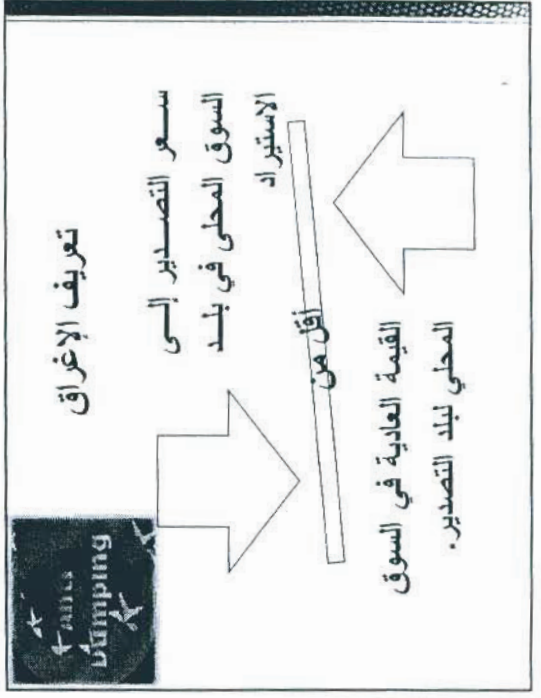 Anti
Dumping
تعريف الإغراق
سعر التصدير إلى
السوق المحلى في بلد
الاستيراد
أقل من
القيمة العادية في السوق
المحلي لبلد التصدير.